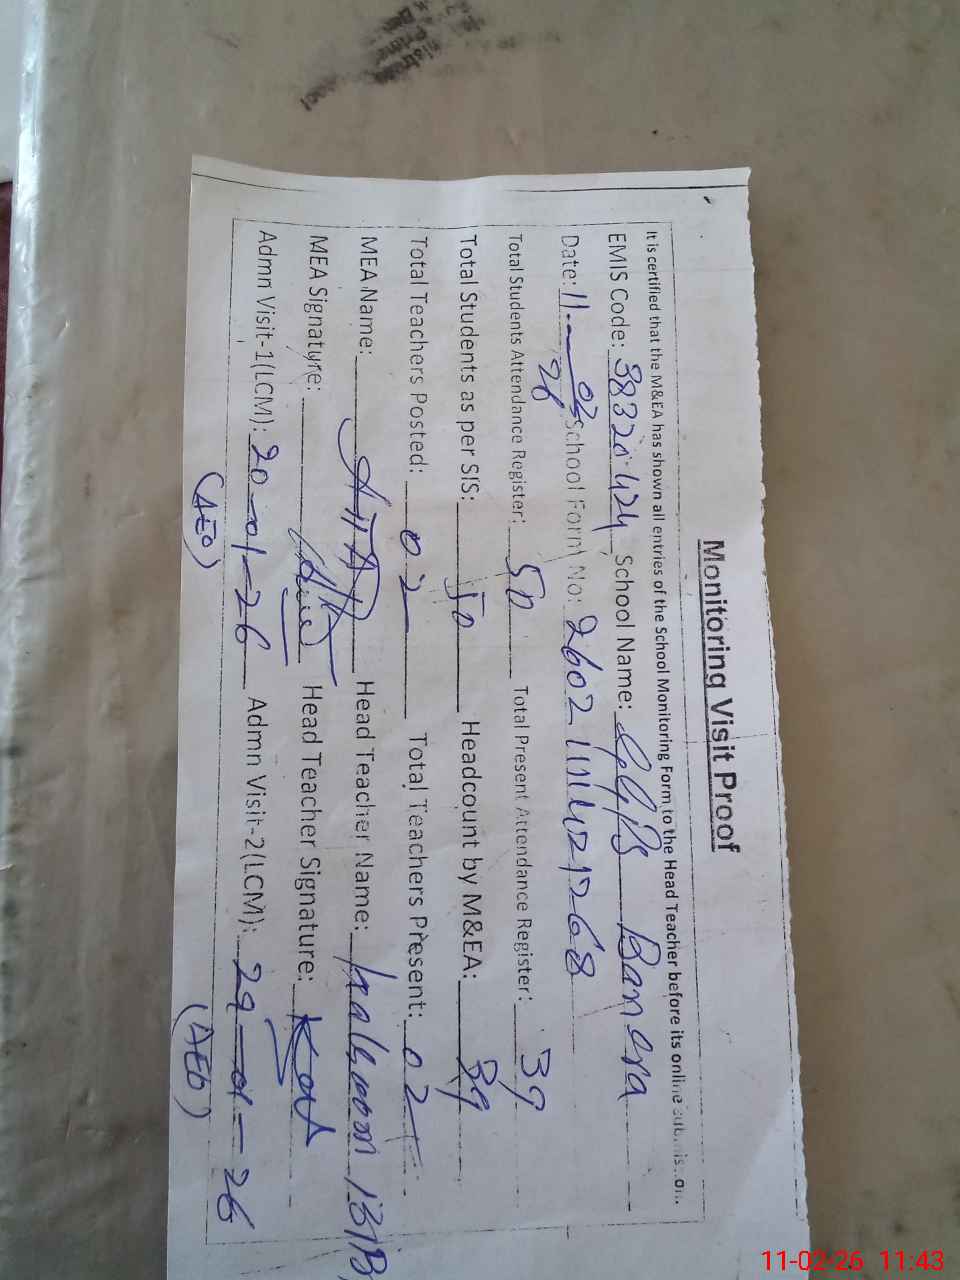 Monitoring Visit Proof
It is certified that the M&EA has shown all entries of the School Monitoring Form to the Head Teacher before its online submission.
EMIS Code: 38320424 School Name: GGPS Banera
Date: 11-02-26 School Form No:
Total Students Attendance Register: 50 Total Present Attendance Register: 39
Total Students as per SIS: 50 Headcount by M&EA: 39
Total Teachers Posted: 02 Total Teachers Present: 02
MEA Name: Head Teacher Name: BIBI
MEA Signature: Head Teacher Signature:
Admn Visit-1(LCM): 20-01-26 Admn Visit-2(LCM): 29-01-26
(AEO) (AEO)
11-02-26 11:43